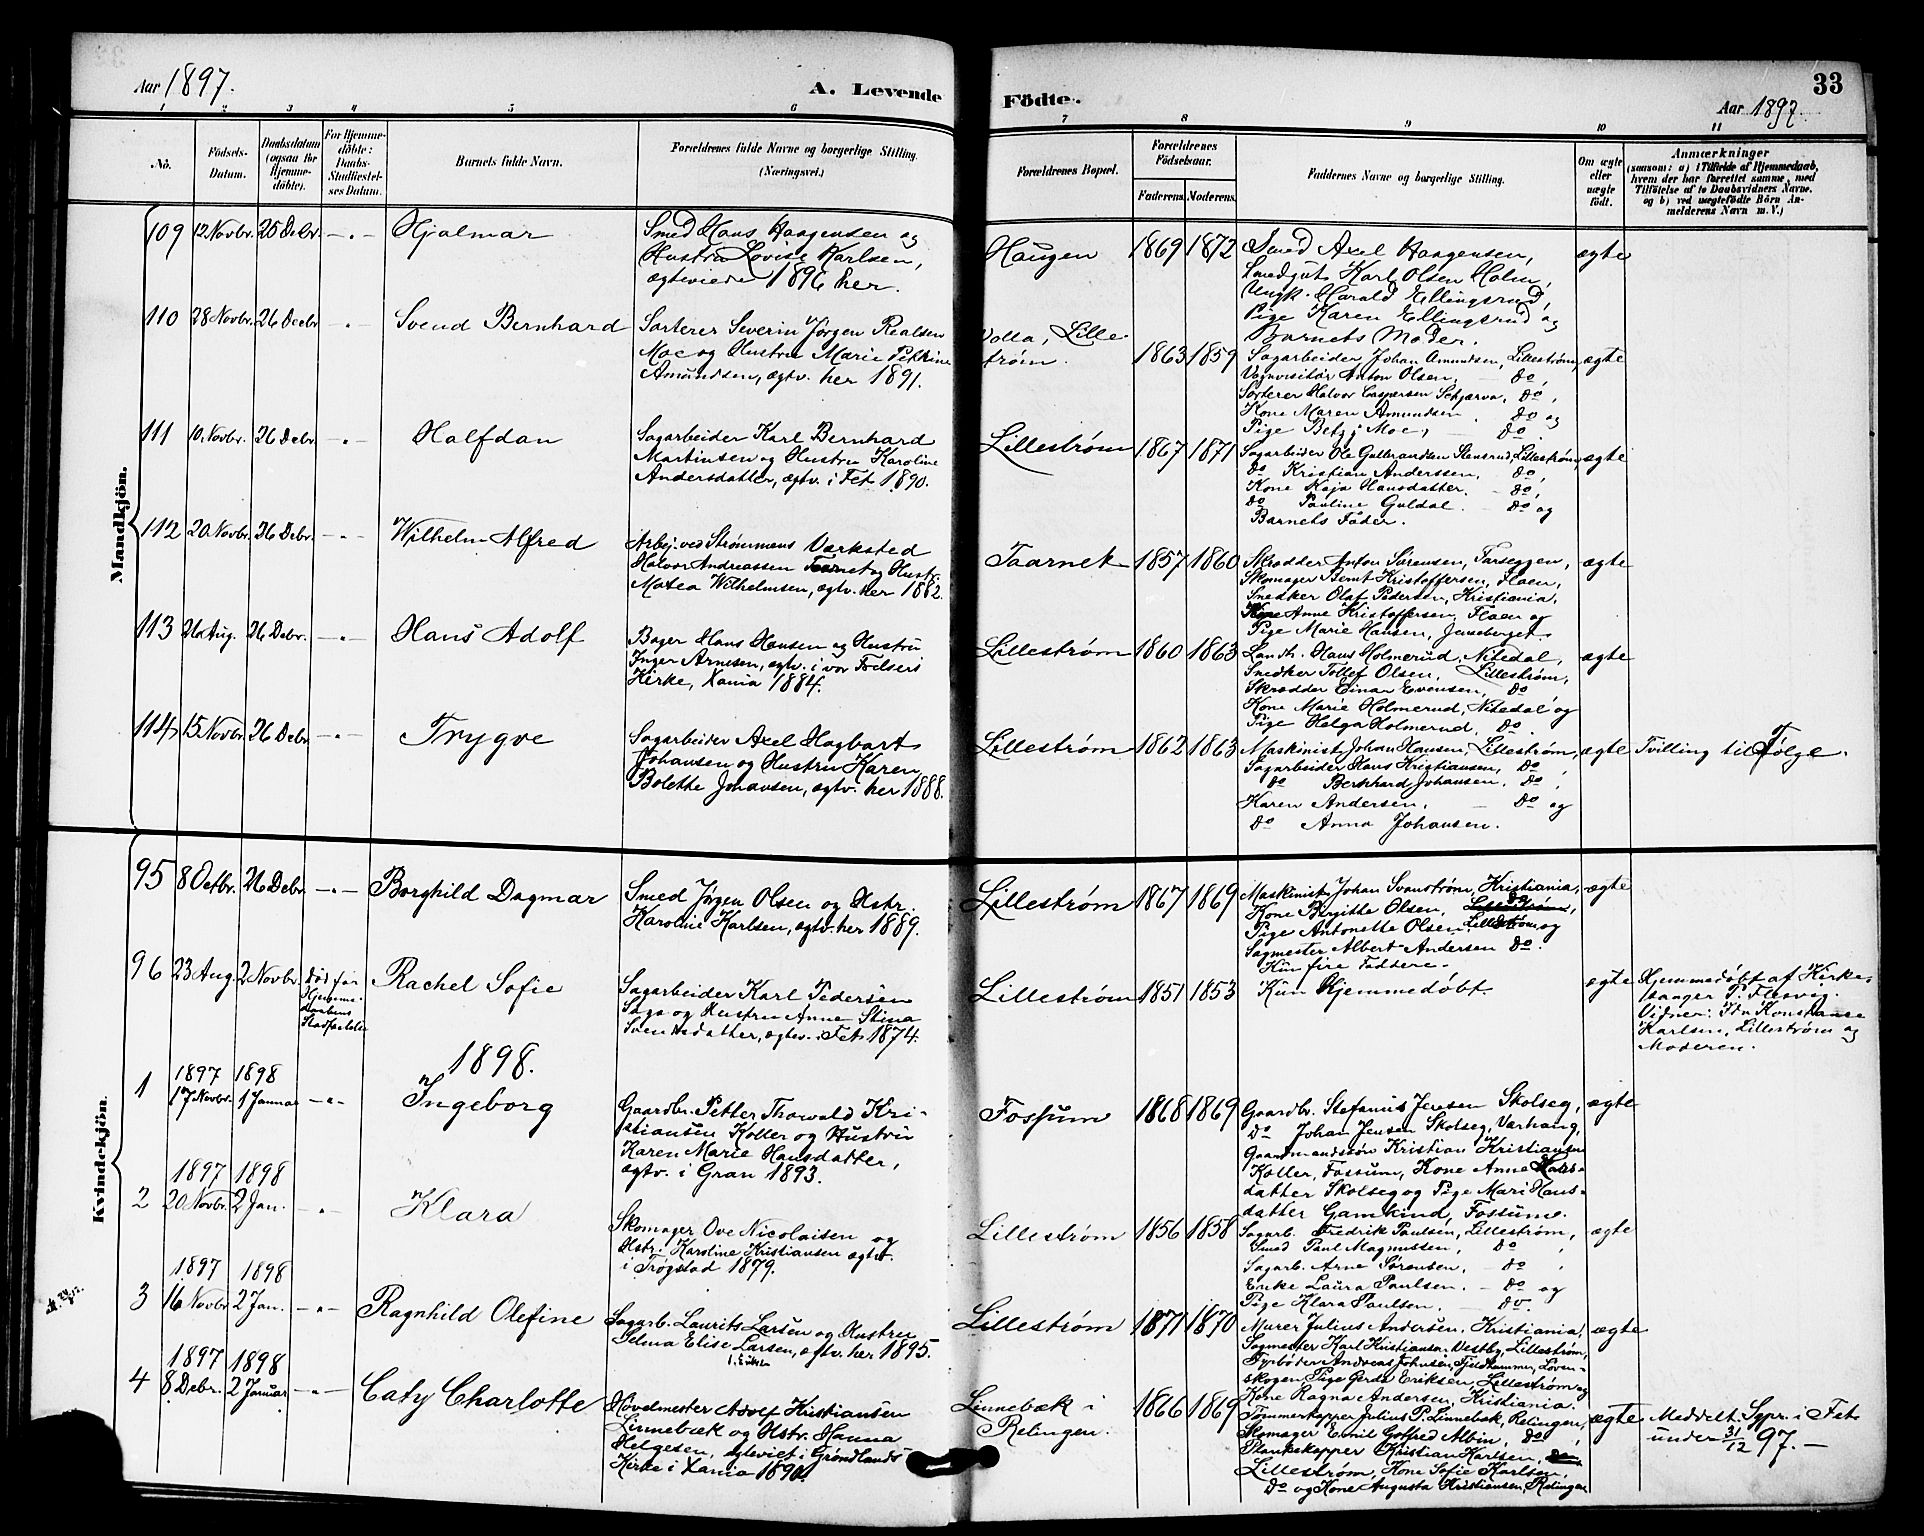 Aar 1897.
A. Levende
Födte.
33
Aar 1897.
1 2 3 4 5 6
7 8 9 10 11
No.
Födsels-
Datum.
Daabsdatum
(ogsaa for
Hjemme-
döbte).
For Hjemme-
döbte:
Daabs-
Stadfæstel-
ses Datum.
Barnets fulde Navn.
Forældrenes fulde Navne og borgerlige Stilling.
(Næringsvei.)
Forældrenes Bopæl.
Forældrenes
Födselsaar.
Faderens. Moderens.
Faddernes Navne og borgerlige Stilling.
Om ægte
eller
uægte
födt.
Anmærkninger
(saasom: a) i Tilfælde af Hjemmedaab,
hvem der har forrettet samme, med
Tilföielse af to Daabsvidners Navne.
og b) ved uægtefödte Börn An-
melderens Navn m. V.)
Mandkjön.
109 12 Novbr. 25 Decbr. -"- Hjalmar
Smed Hans Haagensen og
Hustru Lovise Karlsen,
ægteviede 1896 her.
Haugen 1869 1872
Smed Axel Haagensen,
Smedgut Karl Olsen Holm,
Ungk. Harald Ellingsrud,
Pige Karen Ellingsrud og
Barnets Moder.
ægte
110 28 Novbr. 26 Decbr. -"- Svend Bernhard
Sorterer Severin Jørgen Realsen
Moe og Hustru Marie Pekkine
Amundsen, ægtv. her 1891.
Volla, Lille
strøm. 1863 1859
Sagarbeider Johan Amundsen, Lillestrøm,
Vognvisitør Anton Olsen, Do,
Sorterer Halvor Caspersen Schjærva, Do,
Kone Maren Amundsen Do og
Pige Betzj Moe, Do
ægte
111 10 Novbr. 26 Debr. -"- Halfdan
Sagarbeider Karl Bernhard
Martinsen og Hustru Karoline
Andersdatter, ægtv. i Fet 1890.
Lillestrøm 1867 1871
Sagarbeider Ole Gulbrandsen Stensrud, Lillestrøm,
Do Kristian Anderssen, Do,
Kone Kaja Hansdatter. Do,
Do Pauline Guldal. Do og
Barnets Fader.
ægte
112 20 Novbr. 26 Debr. -"- Wilhelm Alfred
Arbej. ved Strømmens Værksted
Halvor Andreassen Taarnet og Hust.
Matea Wilhelmsen, ægtv. her 1882.
Taarnet 1857 1860
Skrædder Anton Sørensen, Farseggen,
Skomager Bernt Kristoffersen, Flaen,
Snedker Olaf Pedersen, Kristiania,
Kone Anne Kristoffersen, Flaen og
Pige Marie Hansen, Jenseberget.
ægte
113 21 Aug. 26 Debr. -"- Hans Adolf
Bager Hans Hansen og Hustru
Inger Arnesen, ægtv. i vor Frelsers
Kirke, Xania 1884.
Lillestrøm 1860 1863
Landh. Hans Holmerud, Nitedal,
Snedker Tollef Olsen, Lillestrøm,
Skrædder Einar Evensen, Do,
Kone Marie Holmerud, Nitedal og
Pige Helga Holmerud, Do.
ægte
114 15 Novbr. 26 Debr. -"- Trygve
Sagarbeider Axel Hagbart
Johansen og Hustru Karen
Bolette Johansen, ægtv. her 1888.
Lillestrøm 1862 1863
Maskinist Johan Hansen, Lillestrøm,
Sagarbeider Hans Kristiansen, Do,
Do Bernhard Johansen, Do,
Karen Andersen, Do og
Do Anna Johansen.
ægte
Tvilling til Følge.
Kvindekjön.
95 8 Octbr. 26 Debr. -"- Borghild Dagmar
Smed Jørgen Olsen og Hstr.
Karoline Karlsen, ægtv. her 1889.
Lillestrøm 1867 1869
Maskinist Johan Svanstrøm, Kristiania,
Kone Birgitte Olsen, Do
Pige Antonette Olsen Lillestrøm og
Sagmester Albert Andersen Do.
Kun fire Faddere.
ægte
96 23 Aug. 2 Novbr. Død før
Hjemme-
daabens
Stadfæstelse
Rachel Sofie
Sagarbeider Karl Pedersen
Saga og Hustru Anne Stina
Svendsdatter, ægtev. i Fet 1874.
Lillestrøm 1851 1853
Kun Hjemmedøbt.
ægte
Hjemmedøbt af Kirke-
sanger P. Flesvig.
Vidner: Fru Konstanse
Karlsen, Lillestrøm og
Moderen.
1898.
1897 1898
1 17 Novbr. 1 Januar -"- Ingeborg
Gaardbr. Petter Thorvald Kri-
stiansen Koller og Hustru
Karen Marie Hansdatter,
ægtv. i Gran 1893.
Fossum 1868 1869
Gaardbr. Stefanus Jensen Skolseg,
Do Johan Jensen Skolseg, Varhaug,
Gaardmandssøn Kristian Kristiansen
Koller, Fossum, Kone Anne Hans-
datter Skolseg og Pige Mari Hans-
datter Gamkind, Fossum.
ægte
1897 1898
2 20 Novbr. 2 Jan. -"- Klara
Skomager Ove Nicolaisen og
Hstr. Karoline Kristiansen ægtv.
i Trøgstad 1879.
Lillestrøm 1856 1858
Sagarb. Fredrik Paulsen, Lillestrøm,
Smed Paul Magnussen, Do,
Sagarb. Arne Sørensen, Do,
Enke Laura Paulsen. Do og
Pige Klara Paulsen. Do.
ægte
1897 1898
3 16 Novbr. 2 Jan. -"- Ragnhild Olefine
Sagarb. Laurits Larsen og Hustru
Selma Elise Larsen, ægtv. her 1895.
Lillestrøm 1871 1870
Murer Julius Andersen, Kristiania,
Sagmester Karl Kristiansen Vestby, Lillestrøm,
Fyrbøder Andreas Johnsen, Fjeldhammer, Løven-
skogen, Pige Gerda Eriksen, Lillestrøm og
Kone Ragna Andersen, Kristiania.
ægte
1897 1898
4 8 Debr. 2 Januar -"- Caty Charlotte
Høvelmester Adolf Kristiansen
Linnebæk og Hstr. Hanna
Helgesen, ægteviet i Grønlands
Kirke i Xania 1890.
Linnebæk i
Relingen. 1866 1869
Tømmerkapper Julius P. Linnebæk, Relingen,
Skomager Emil Gotfred Albin, Do,
Plankekapper Kristian Karlsen,
Lillestrøm, Kone Sofie Karlsen,
Do og Kone Augusta Kristiansen, Relingen
ægte
Meddelt Spr. i Fet
under 31/12 97.-